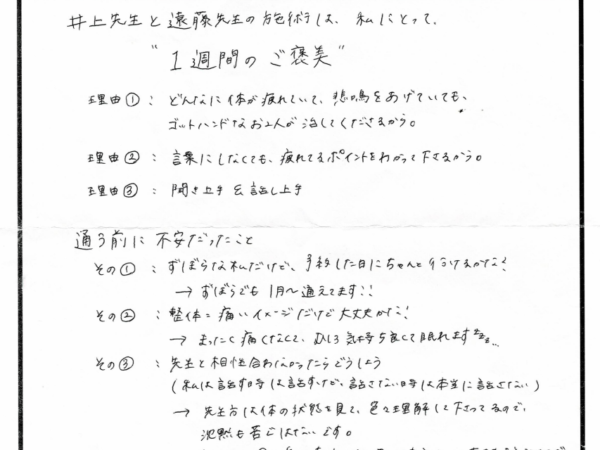 井上先生と遠藤先生の施術は、私にとって、
"1週間のご褒美"
理由①：どんなに体が疲れていて、悲鳴をあげていても、
ゴットハンドなお2人が治してくださるから。
理由②：言葉にしなくても、疲れてるポイントをわかって下さるから。
理由③：聞き上手＆話し上手
通う前に不安だったこと
その①：ずぼらな私だけど、予約した日にちゃんと行けるかな！
→ ずぼらでも1月〜通えてます！！
その②：整体＝痛いイメージだけど大丈夫かな！
→ まったく痛くなくて、むしろ気持ち良くて眠れます
その③：先生と相性合わなかったらどうしよう
(私は話す時は話すけど、話さない時は本当に話さない)
→ 先生方は体の状態を見て、色々理解して下さってるので、
沈黙も苦じゃないです。